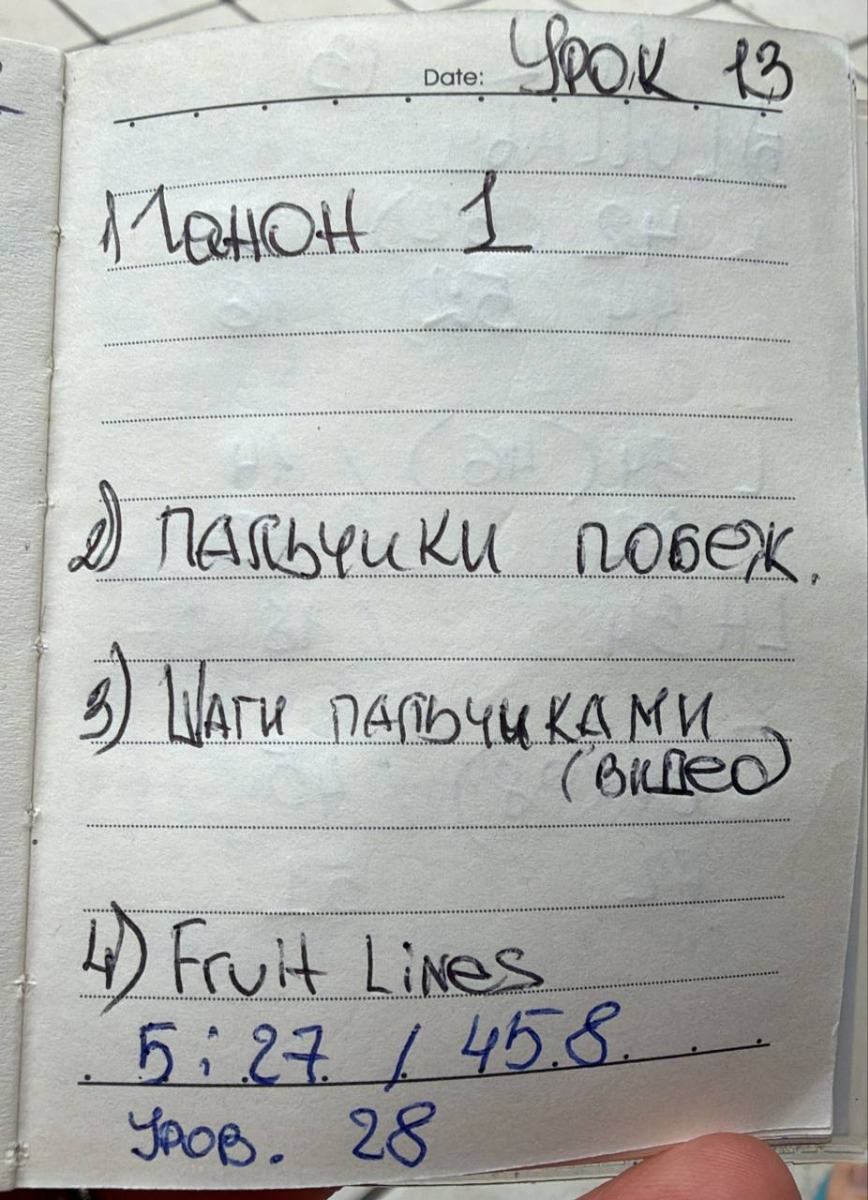 Date: Урок 13
1) Ганон 1
2) Пальчики побеж.
3) Шаги пальчиками
(видео)
4) Fruit Lines
5:27 / 458
Уров. 28